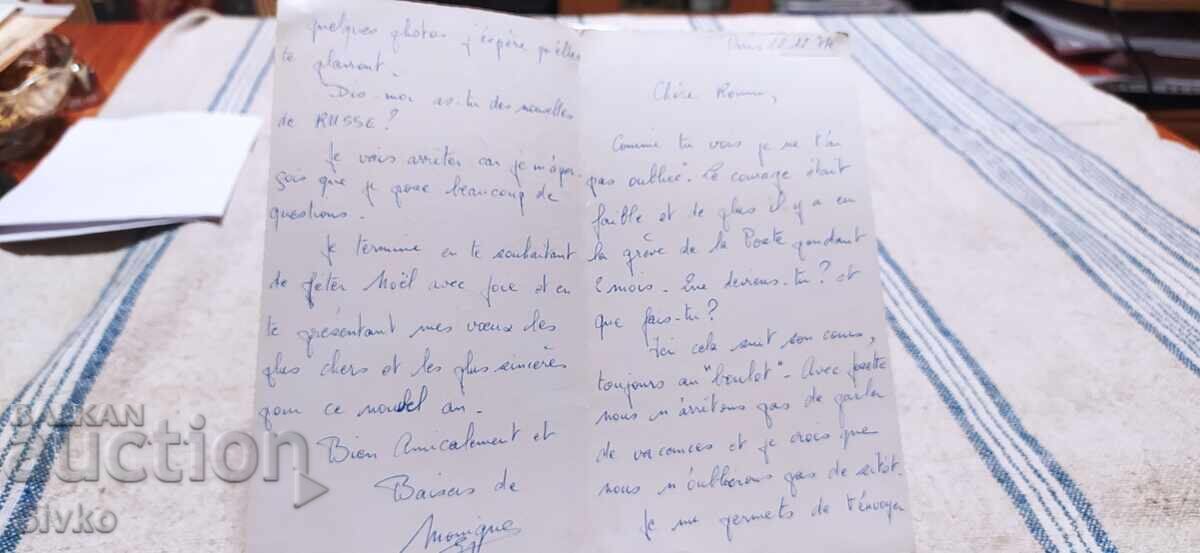 11.12.74
Chère
Comme tu vois je ne t'ai
pas oubliée. Le courage était
faible et de plus il y a eu
la grève de la Poste pendant
2 mois. Que deviens-tu? et
que fais-tu?
Ici cela suit son cours,
toujours au "boulot". Avec Josette
nous n'arrêtons pas de parler
de vacances et je crois que
nous n'oublierons pas de sitôt.
Je me permets de t'envoyer
quelques photos j'espère qu'elles
te plairont.
Dis-moi as-tu des nouvelles
de RUSSE?
Je vais arrêter car je m'aper-
çois que je pose beaucoup de
questions.
Je termine en te souhaitant
de fêter Noël avec joie et en
te présentant mes vœux les
plus chers et les plus sincères
pour ce nouvel an.
Bien Amicalement et
Baisers de
Monique
BALKAN
auction
Sivko